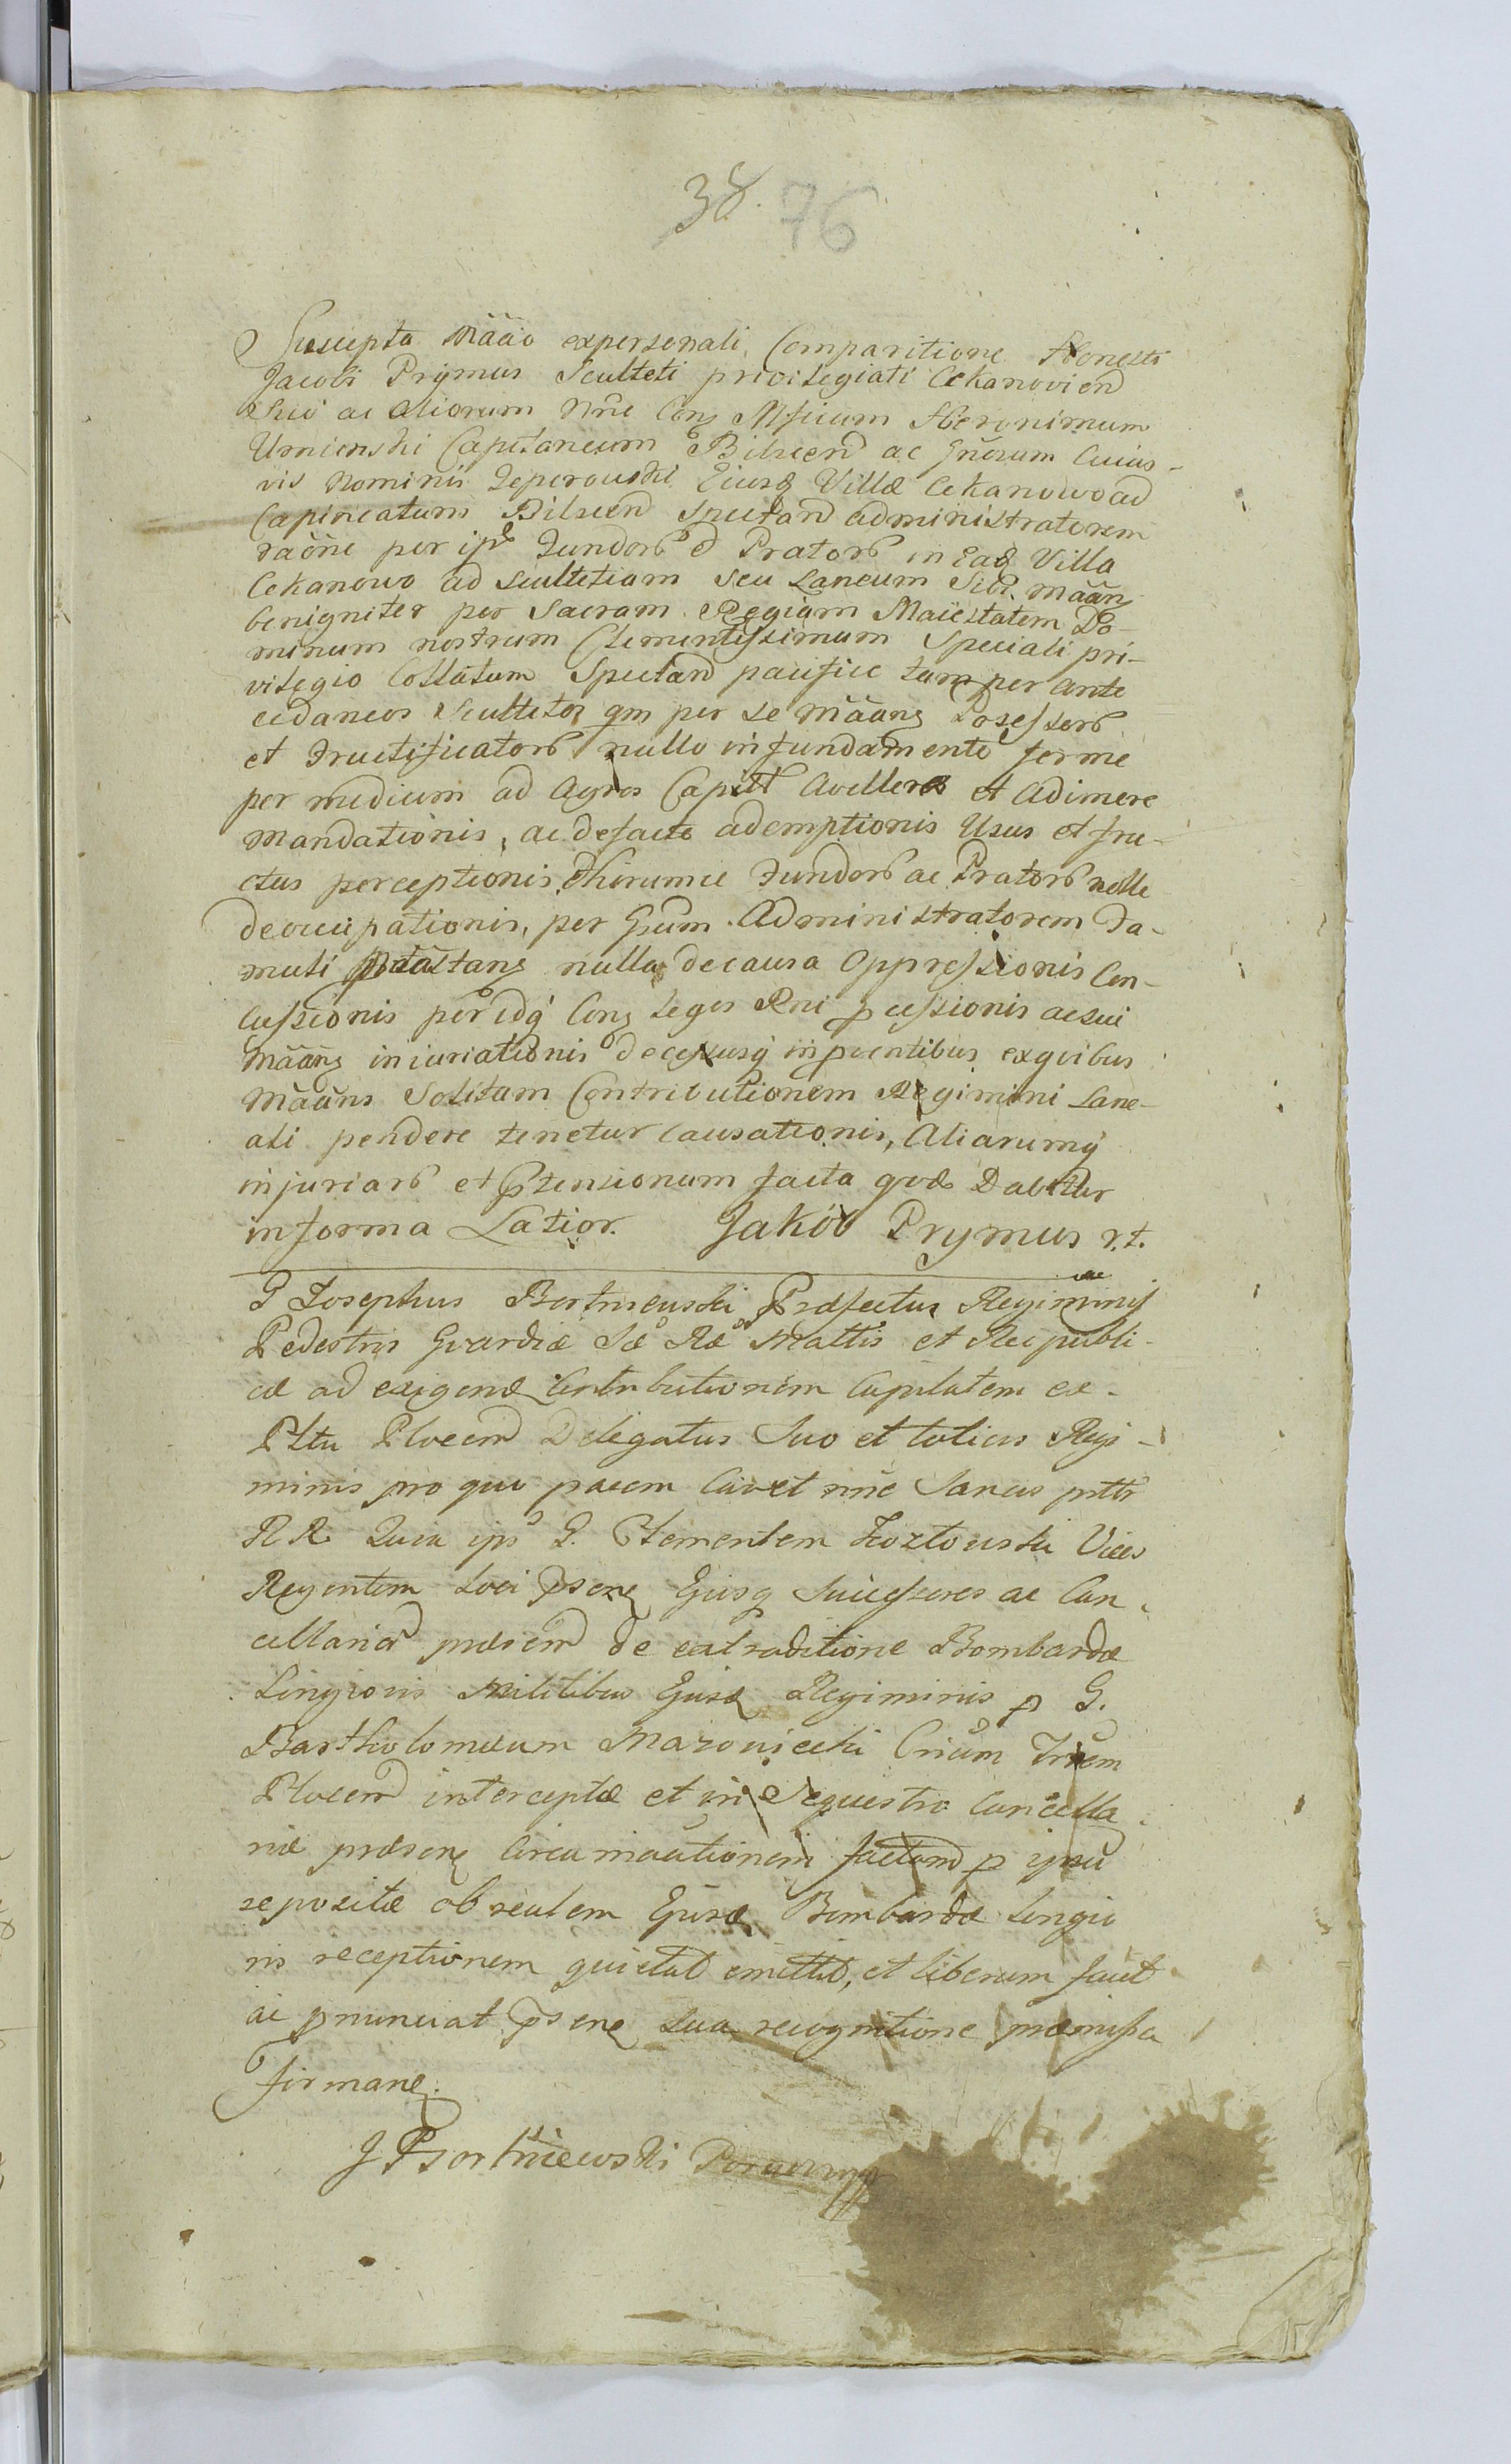 38. 76
Suscepta Mããõ expersonali Comparitione Honesti
Jacobi Prymus Sculteti privilegiati Cekanovien
Suõ ac Aliorum Nñe Conż Mficum Heronimum
Umienski Capitaneum Bilscen ac Gñosum Cuius-
vis Nominis Zeperowski Eiusq Villæ Cekanowo ad
Capineatum Bilscen Spectan administratorem
raõne per ips Fundorb & Pratorb in Eadq Villa
Cekanowo ad Scultetiam seu Laneum Sibi Mããnż
benigniter per Sacram Regiam Maiestatem Do-
minum nostrum Clementissimum Speciali pri-
vilegio Collatum Spectan pacifice tam per ante
cedaneos Scultetos qm per se Mããnż Possessorb
et Fructificatorb nullo in fundamento ferme
per medium ad Agros Capitt Avellere et Adimere
Mandationis, ac defacto ademptionis Usus et fru-
ctus perceptionis, Fundorb ac Pratorb
deoccupationis, per Gsum Administratorem Fa-
muli nulla decausa Oppressionis Con-
cussionis per idq Conż Leges Rni pcessionis ac sui
Mããnż iniuriationis exquibus
Mããns Solitam Contributionem Regimini Lane-
ali pendere tenetur Causationis, Aliarumq
injuriarb et Ptensionum facta quæ Dabitur
informa Latior. Jakób Prymus r.t.
G Josephus Bortniewski Præfectus Regiminis
Pedestris Gvardiæ Sæ Ræ Mattis et Reipubli-
cæ ad exigend Contributionem Capitatem ex
Pttu Plocen Delegatus Suo et totius Regi-
minis pro quo pacem Cavet nñe Sanus pttr
R R Quia ips G. Clementem Kozłowski Vices
Regentem Loci Psenż Ejusq Successores ac Can-
cellariã præsen de extraditione Bombardæ
Longioris Militibus Ejusd Regiminis p G.
Bartholomæum Mazowiecki
Plocen interceptæ et in Sequestro Cancella
riæ præsenż p ipsu
repositæ ob realem Ejusd Bombardæ Longio
ris receptionem quietat emittit, et liberum facit
ac pnunciat Psenż sua recognitione præmissa
firmanż.
J Bortniewski